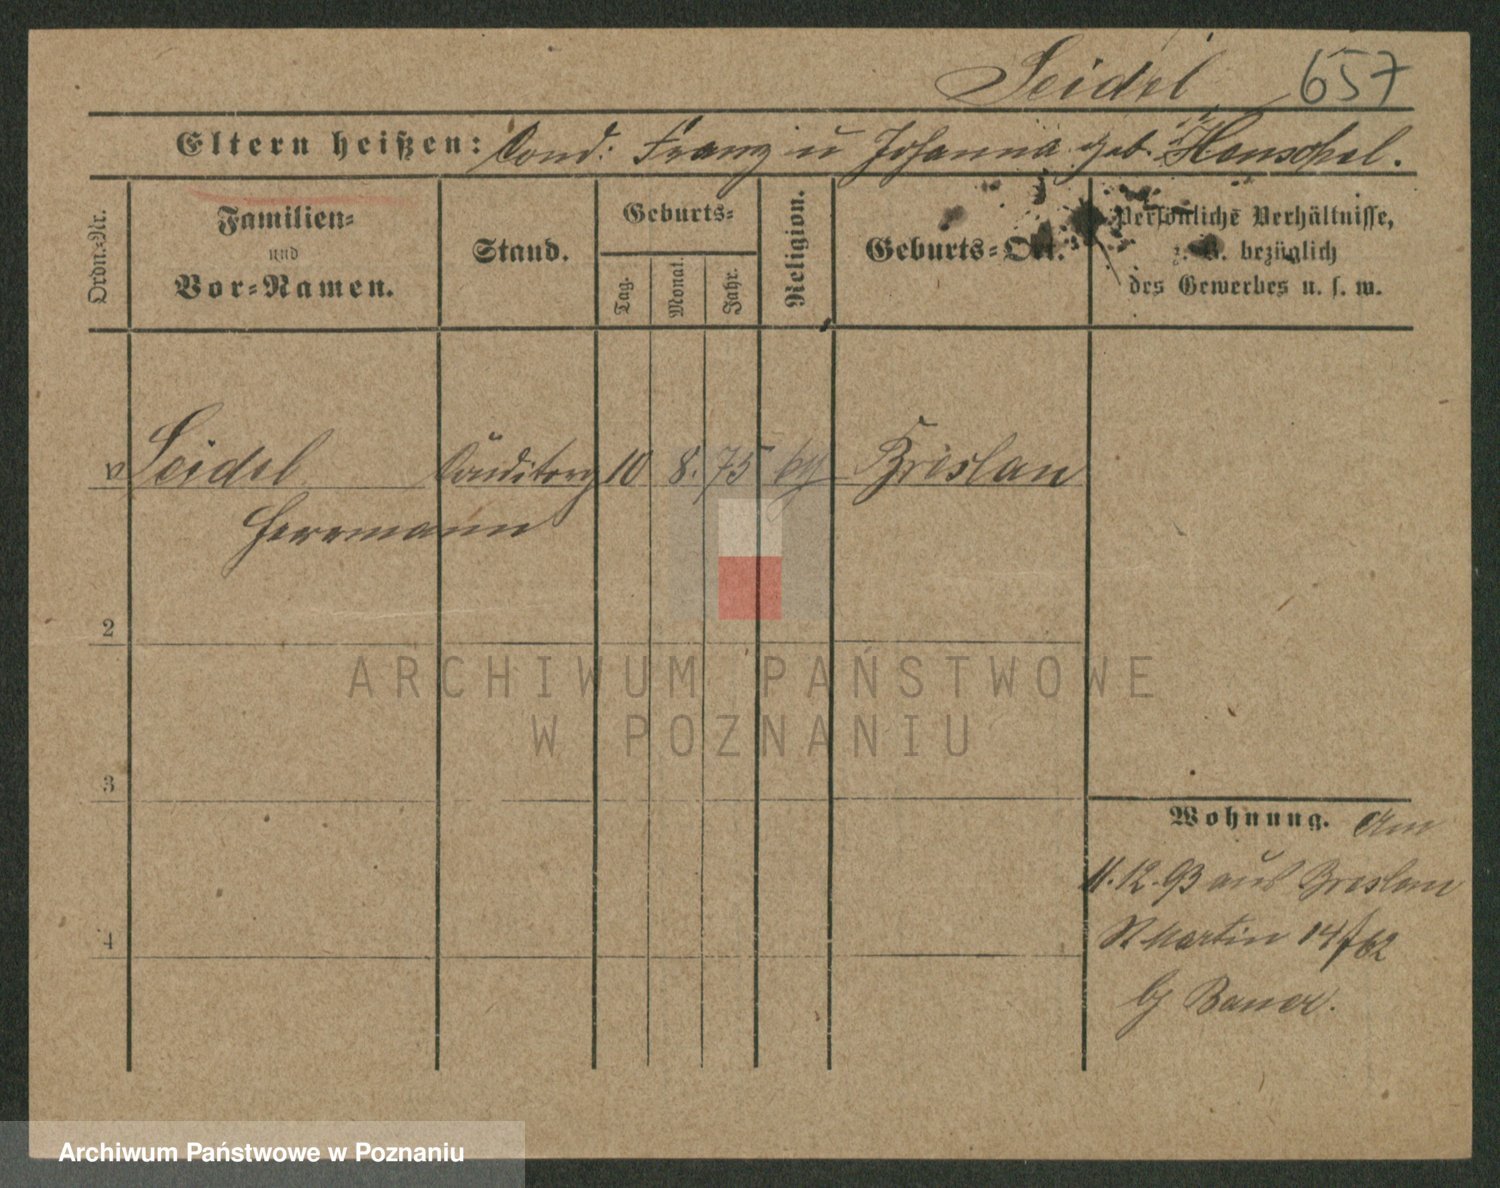 Seidel 657
Eltern heißen: Cond. Franz u Johanna geb. Henschel.
Ordn.=Nr.
Familien=
und
Vor=Namen.
Stand.
Geburts=
Tag.
Monat.
Jahr.
Religion.
Geburts=Ort.
Persönliche Verhältnisse,
z. B. bezüglich
des Gewerbes u. s. w.
Seidel 10 8. 75 Breslau
Herrmann
2
3
4
Wohnung. Am
11.12.93 aus Breslau
St Martin 14/62
bj Bauer.
ARCHIWUM PAŃSTWOWE
W POZNANIU
Archiwum Państwowe w Poznaniu